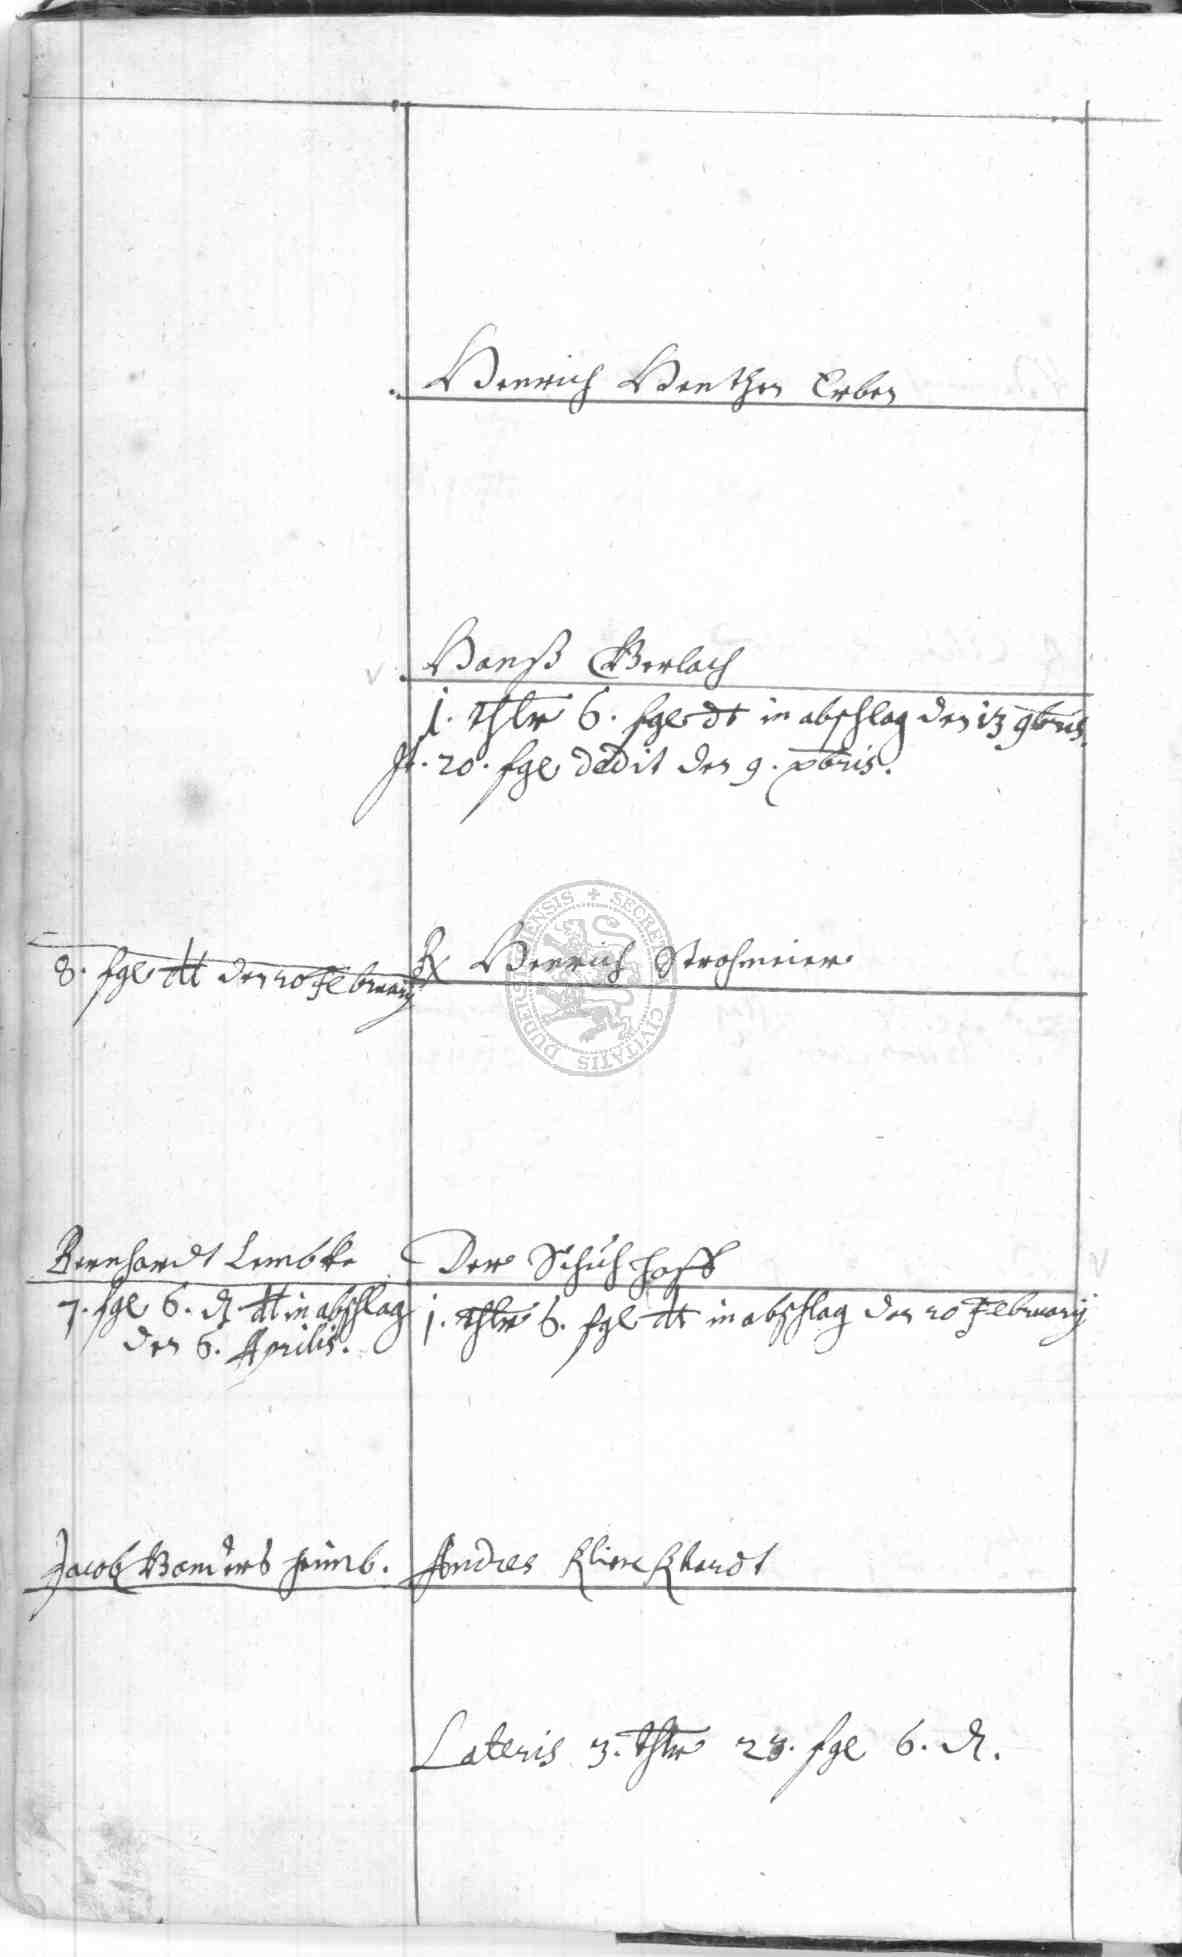 Henrich Henthen Erben
Hanß Gerlach
1. thlr 6. sgl dt in abschlag den 13 9bris.
It. 20. sgl dedit den 9. xbris.
8. sgl dt den 20 February
Henrich Strohmeier
Bernhardt Lembke
Der Schuhhoff
7. sgl 6. d dt in abschlag
den 6. Aprilis.
1. thlr 6. sgl dt in abschlag den 20 February
Jacob
Andres
Lateris 3. thlr 23. sgl 6. d.
SECRE CIVITATIS DUDERS ENSIS